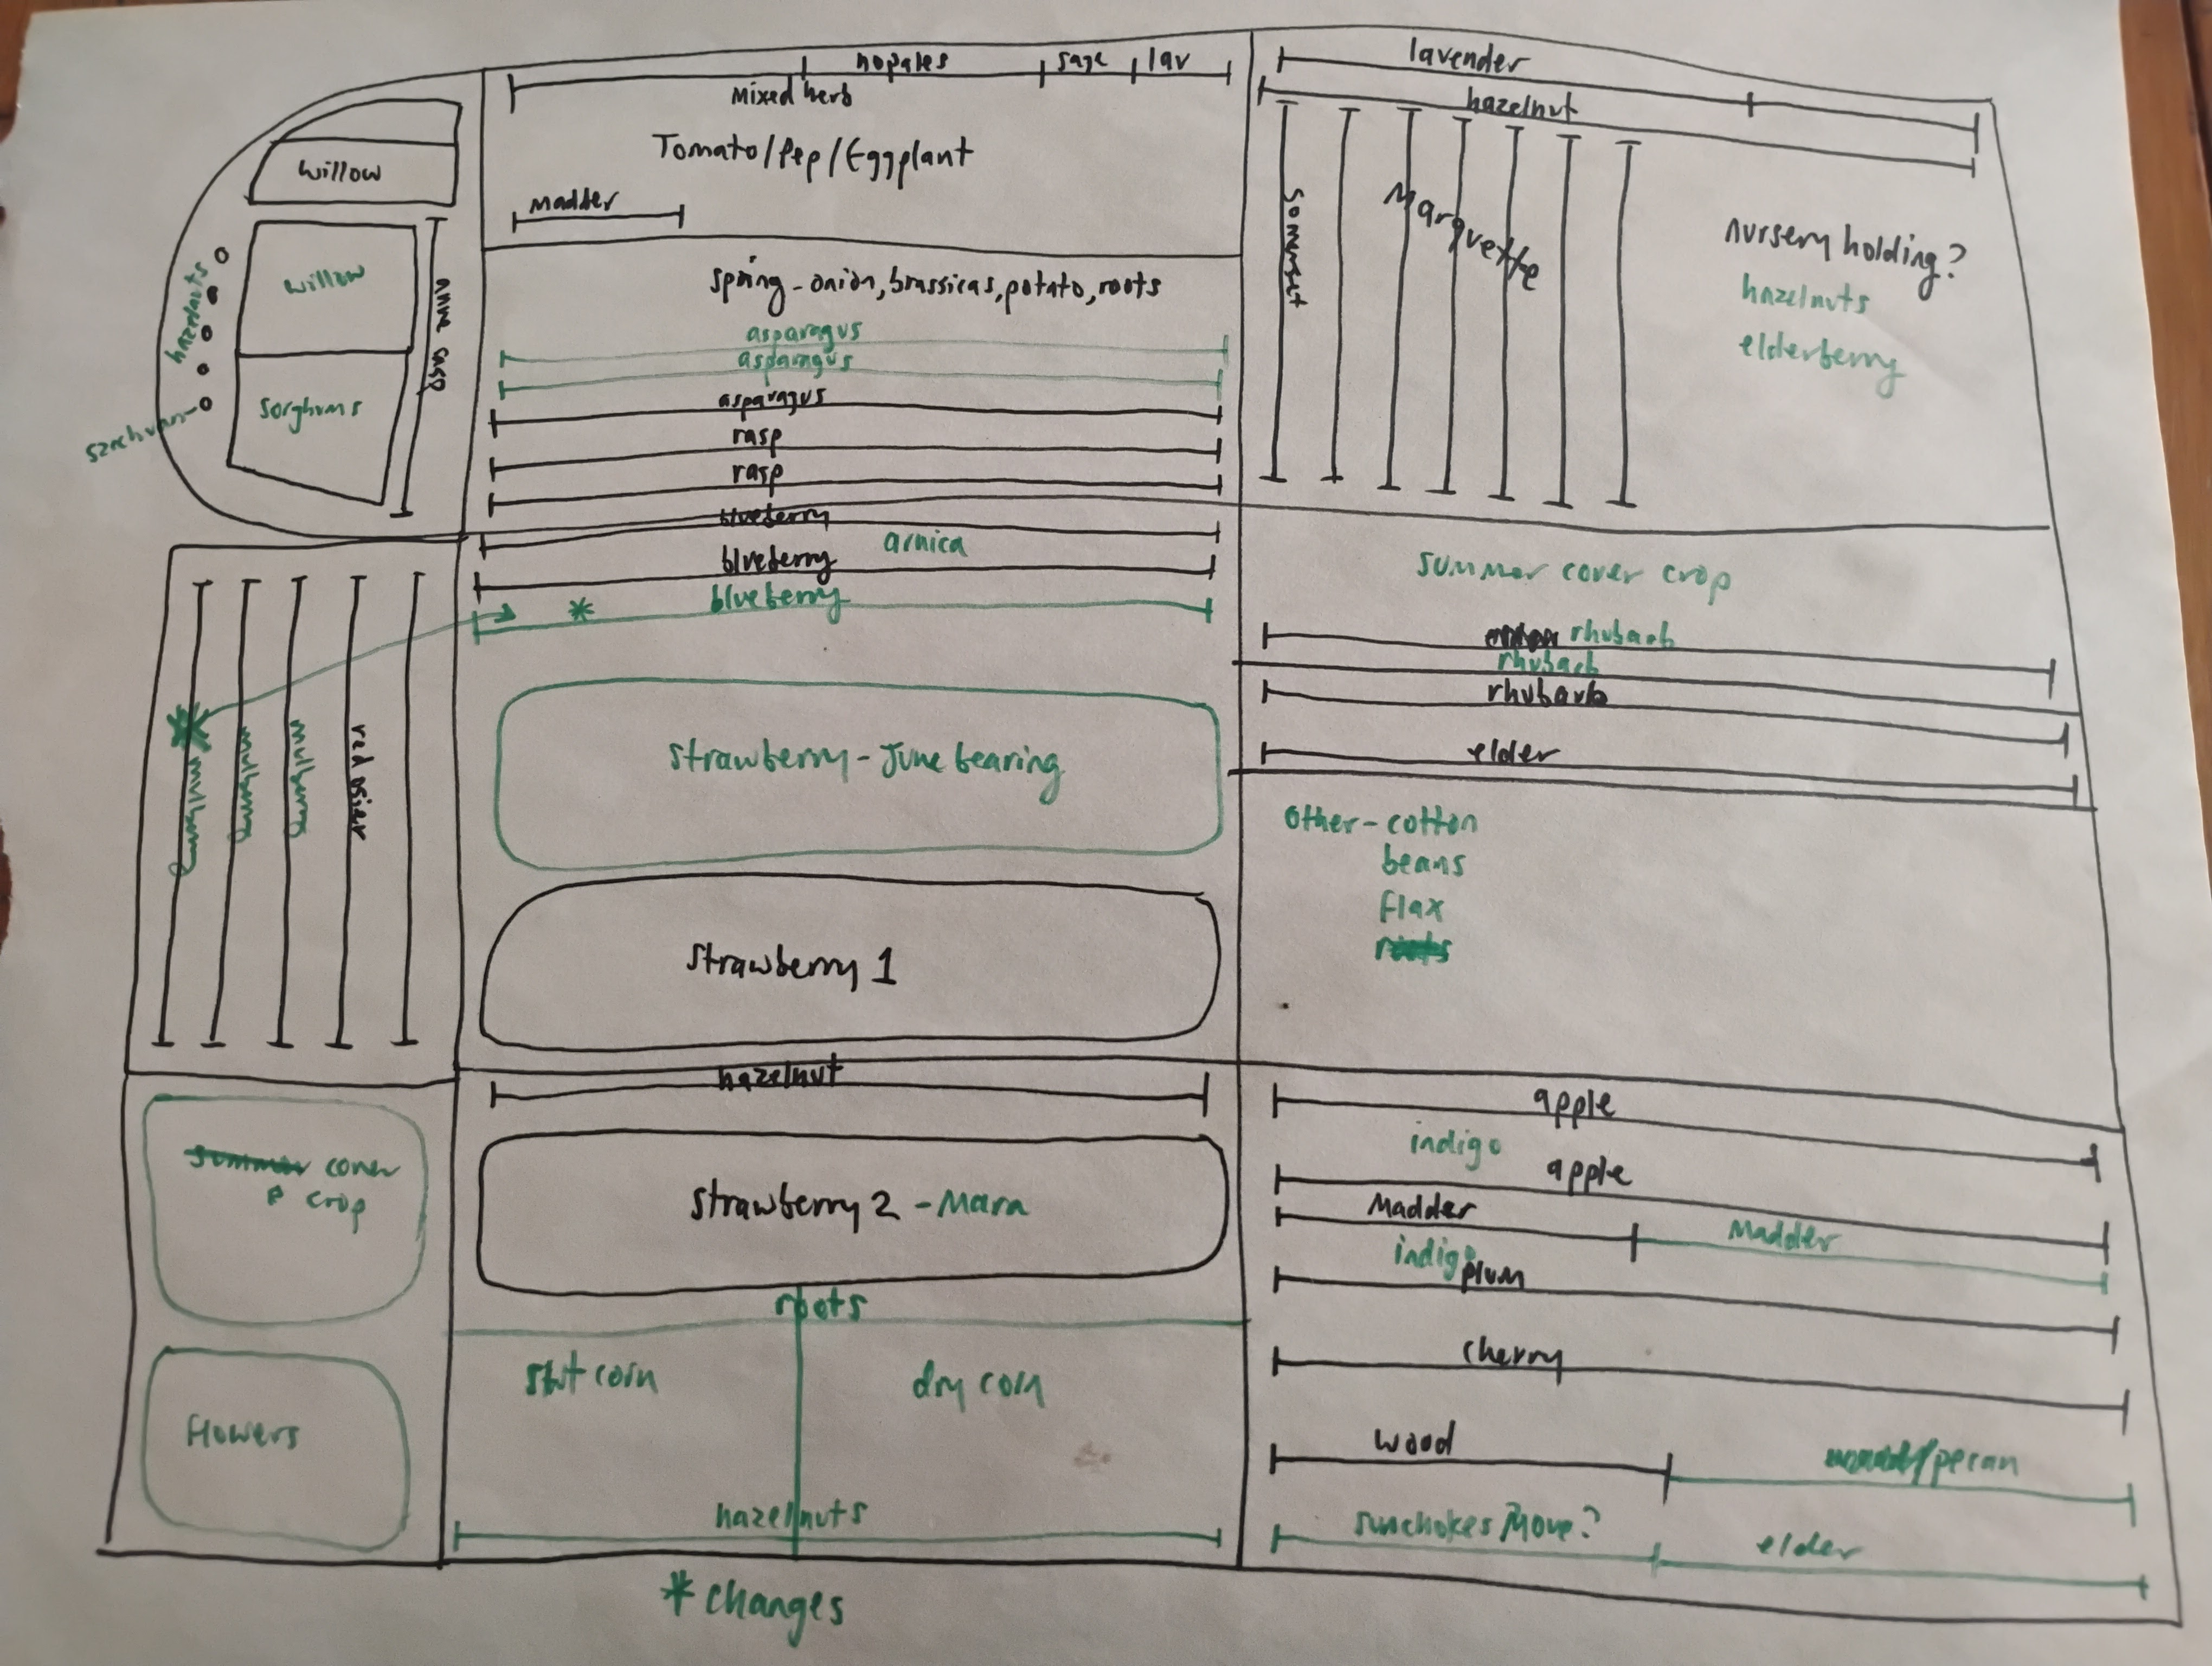 willow
willow
hazelnuts
sorghums
szechuan
mixed herb
nopales
sage
lav
Tomato/Pep/Eggplant
madder
spring - onion, brassicas, potato, roots
asparagus
asparagus
asparagus
rasp
rasp
blueberry
arnica
blueberry
blueberry
*
lavender
hazelnut
Somerset
Marquette
nursery holding?
hazelnuts
elderberry
*
mulberry
mulberry
mulberry
red osier
strawberry - June bearing
strawberry 1
summer cover crop
rhubarb
rhubarb
rhubarb
elder
Other - cotton
beans
flax
roots
summer cover
crop
flowers
hazelnut
strawberry 2 - Mara
roots
swt corn
dry corn
hazelnuts
apple
indigo
apple
Madder
Madder
indigo
plum
cherry
woad
/pecan
sunchokes Move?
elder
* changes